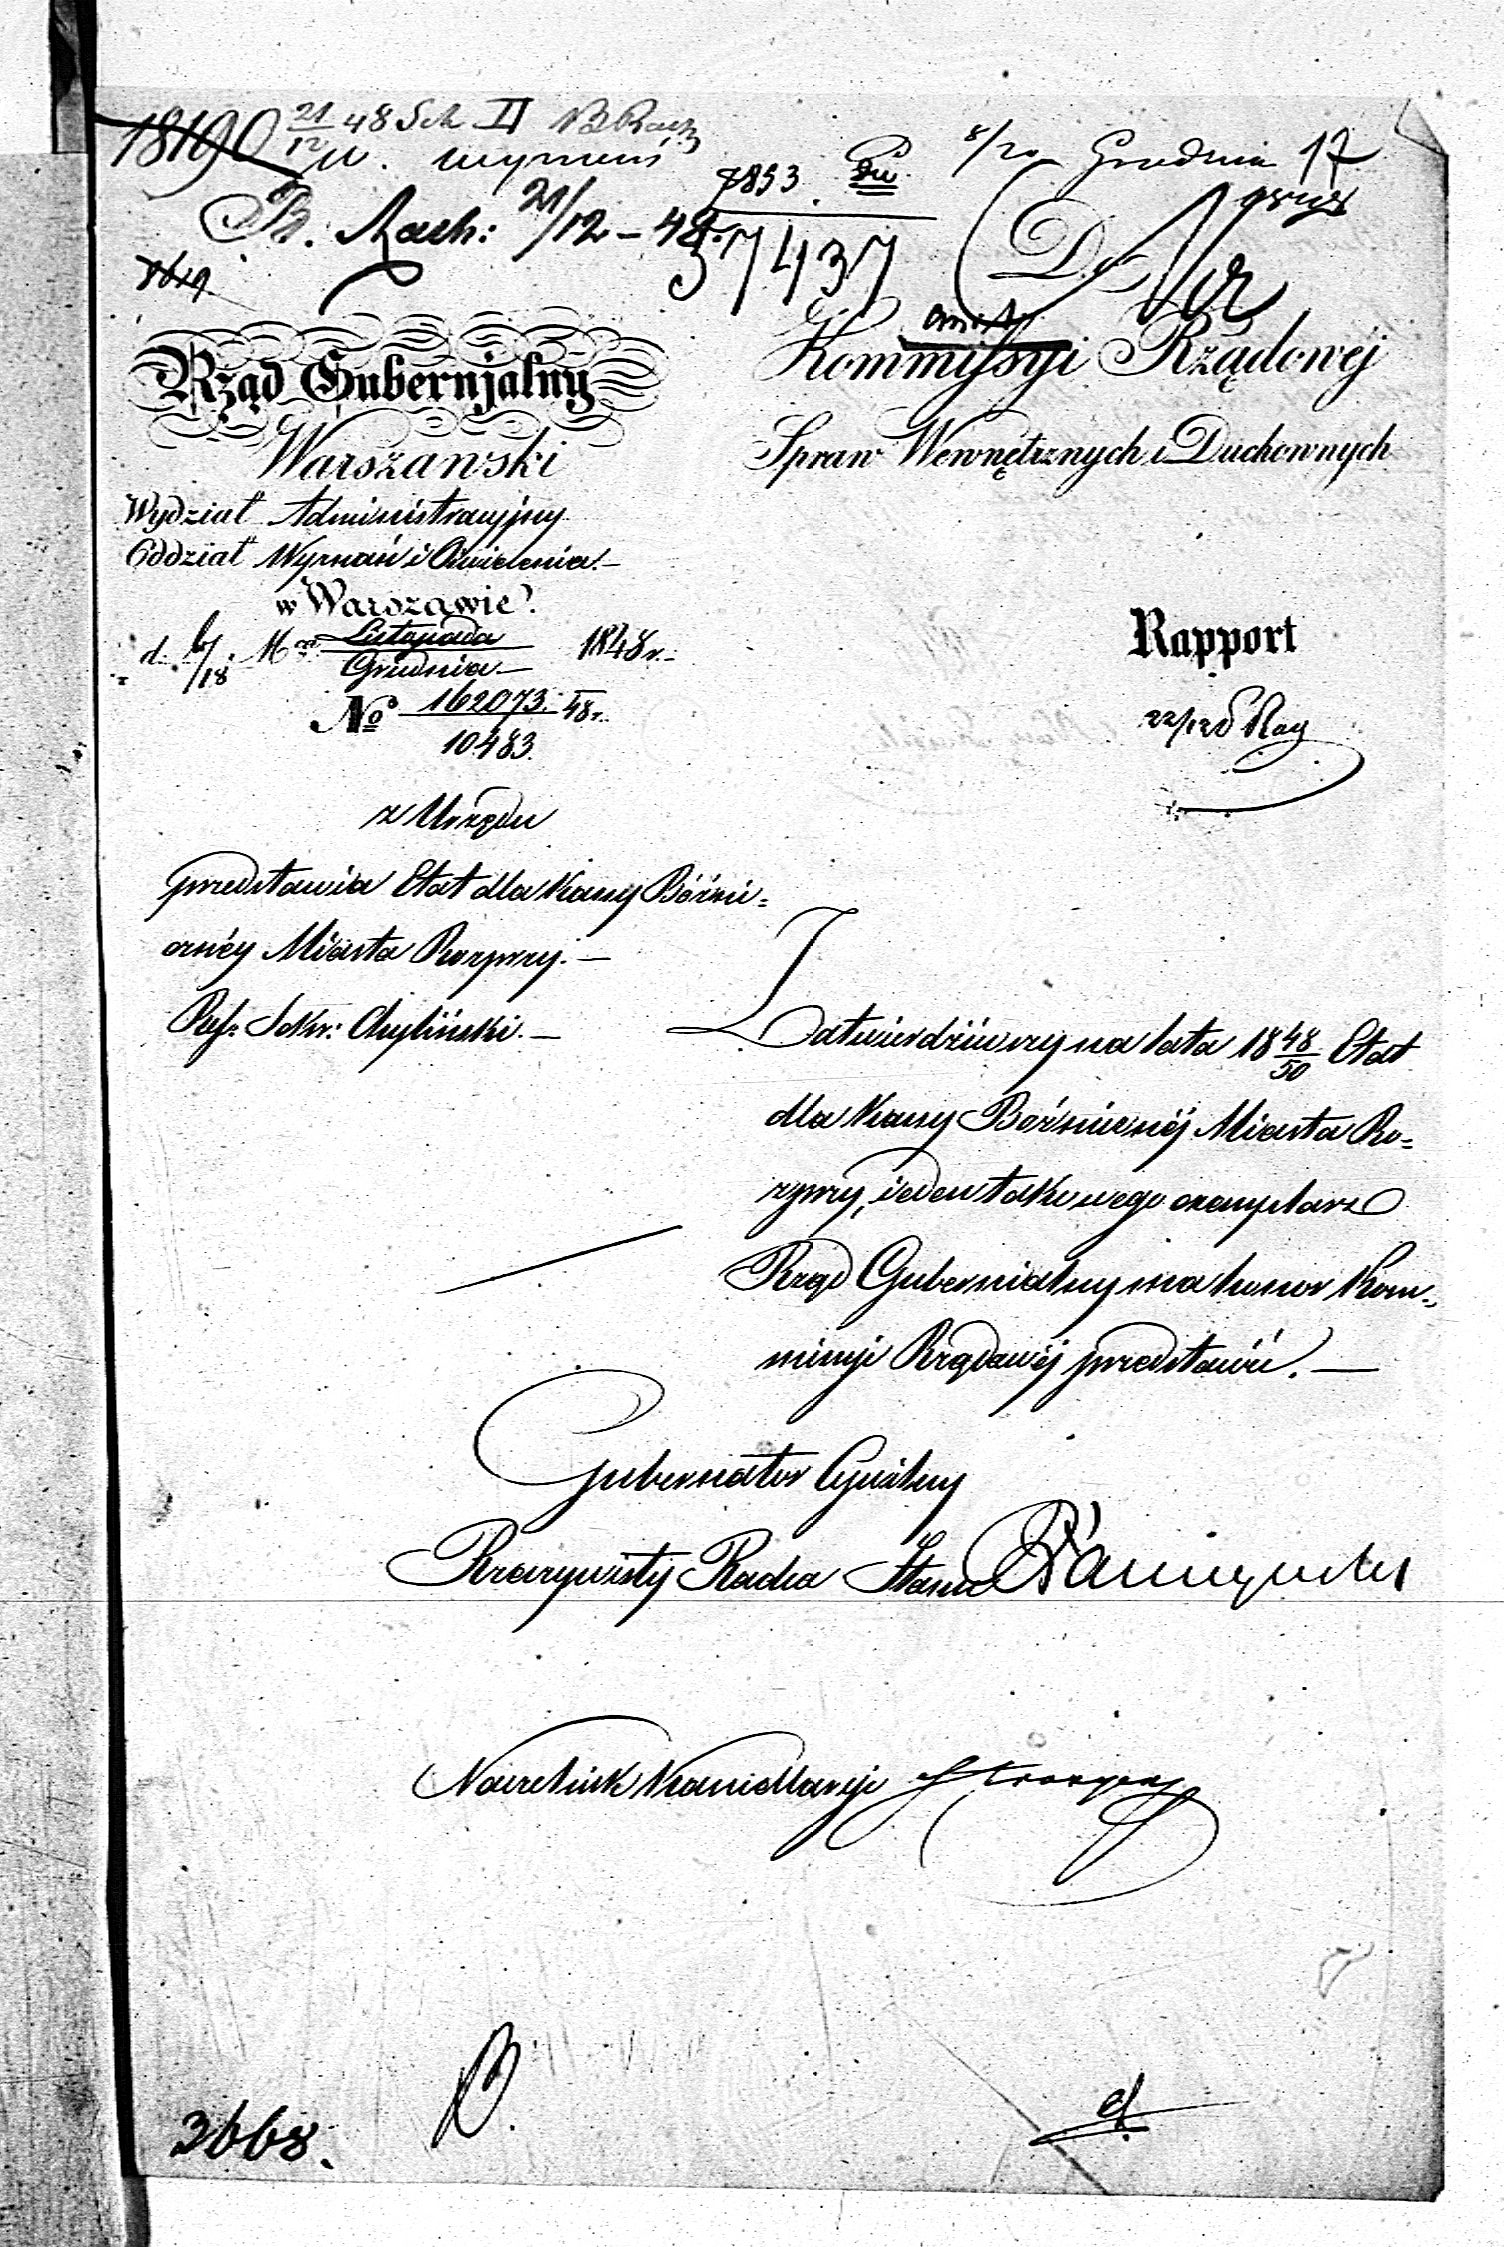 18190 21/12 48 Sek II
W. wyznań
B. Rach: 21/12 – 48
7853
37437
8/20 Grudnia 17
Do
Rząd Gubernjalny
Warszawski
Wydział Administracyjny
Oddział Wyznań i Oświecenia.–
w Warszawie.
d. 6/18 Mca Listopada/Grudnia 1848 r.–
No 162073/10483. 48 r.
Kommissyi Rządowej
Spraw Wewnętrznych i Duchownych
Rapport
z Urzędu
przedstawia Etat dla Kassy Bóźni=
cznéj Miasta Rozprzy.–
Ref: Sekr: Chyliński.–
Zatwierdziwszy na lata 18 48/50 Etat
dla Kassy Bóźnicznéj Miasta Ro=
zprzy, ieden takowego exemplarz
Rząd Gubernialny ma honor Kom=
missyi Rządowéj przedstawić.–
Gubernator Cywilny
Rzeczywisty Radca Stanu
Naczelnik Kancellaryi
3668.